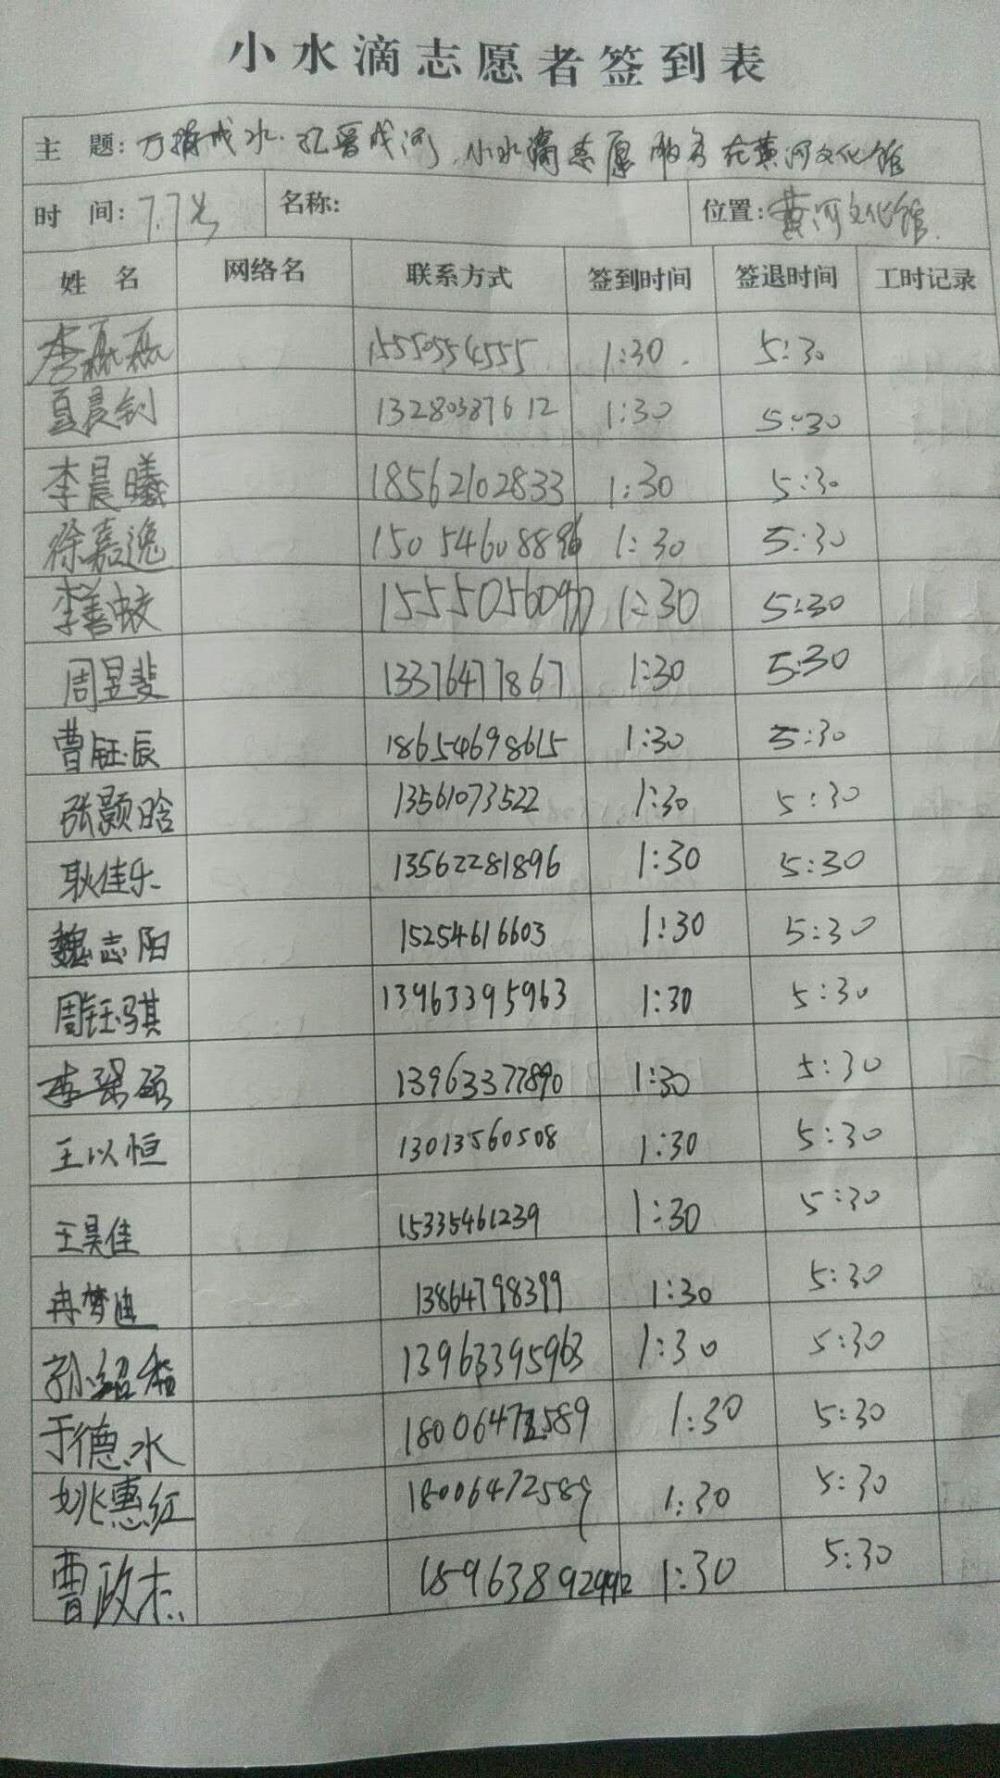 小水滴志愿者签到表
主 题: 万 成水 成河 小水滴志愿服务在黄河文化馆
时 间: 7.7 名称: 位置: 黄河文化馆
姓 名 网络名 联系方式 签到时间 签退时间 工时记录
李磊磊 15550554555 1:30 5:30
夏晨钊 13280387612 1:30 5:30
李晨曦 18562102833 1:30 5:30
徐嘉逸 15054608896 1:30 5:30
李善蛟 1:30 5:30
周昱斐 13376477867 1:30 5:30
曹钰辰 18654698615 1:30 5:30
张颢晗 13561073522 1:30 5:30
耿佳乐 13562281896 1:30 5:30
魏志阳 15254616603 1:30 5:30
周钰骐 13963395963 1:30 5:30
李 硕 13963377890 1:30 5:30
王以恒 13013560508 1:30 5:30
王昊佳 15335461239 1:30 5:30
冉梦迪 13864798399 1:30 5:30
孙绍 13963395963 1:30 5:30
于德水 18006472589 1:30 5:30
姚惠红 18006472589 1:30 5:30
曹政杰 1:30 5:30